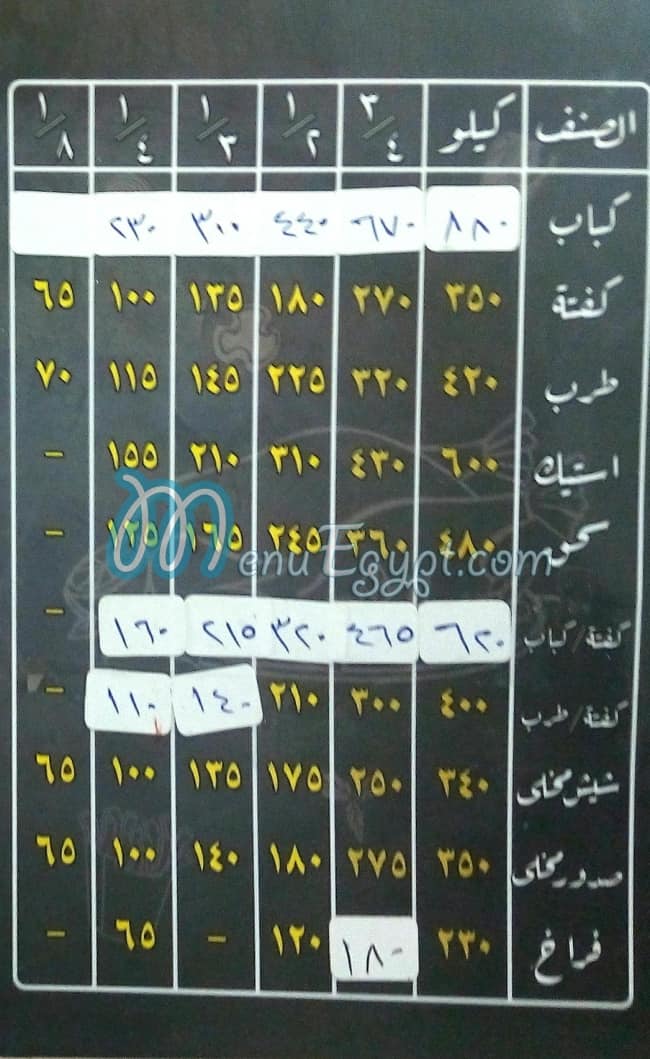 الصنف كيلو ٣/٤ ١/٢ ١/٣ ١/٤ ١/٨
كباب ٨٨٠ ٦٧٠ ٤٤٠ ٣٠٠ ٢٣٠
كفتة ٣٥٠ ٢٧٠ ١٨٠ ١٣٥ ١٠٠ ٦٥
طرب ٤٢٠ ٣٢٠ ٢٢٥ ١٤٥ ١١٥ ٧٠
استيك ٦٠٠ ٤٣٠ ٣١٠ ٢١٠ ١٥٥ -
سجق ٤٨٠ ٣٦٠ ٢٤٥ ١٦٥ ١٢٥ -
MenuEgypt.com
كفتة/كباب ٦٢٠ ٤٦٥ ٣٢٠ ٢١٥ ١٦٠ -
كفتة/طرب ٤٠٠ ٣٠٠ ٢١٠ ١٤٠ ١١٠ -
شيش مخلى ٣٤٠ ٢٥٠ ١٧٥ ١٣٥ ١٠٠ ٦٥
صدور مخلى ٣٥٠ ٢٧٥ ١٨٠ ١٤٠ ١٠٠ ٦٥
فراخ ٢٣٠ ١٨٠ ١٢٠ - ٦٥ -